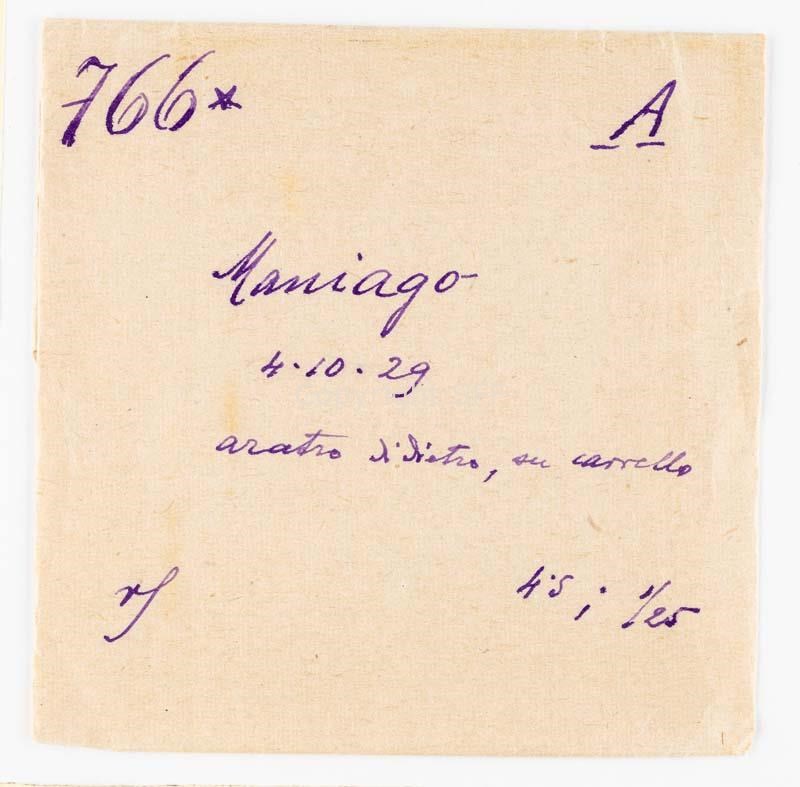 766* A
Maniago
4.10.29
aratro di dietro, su carrello
4.5 ; 1/25